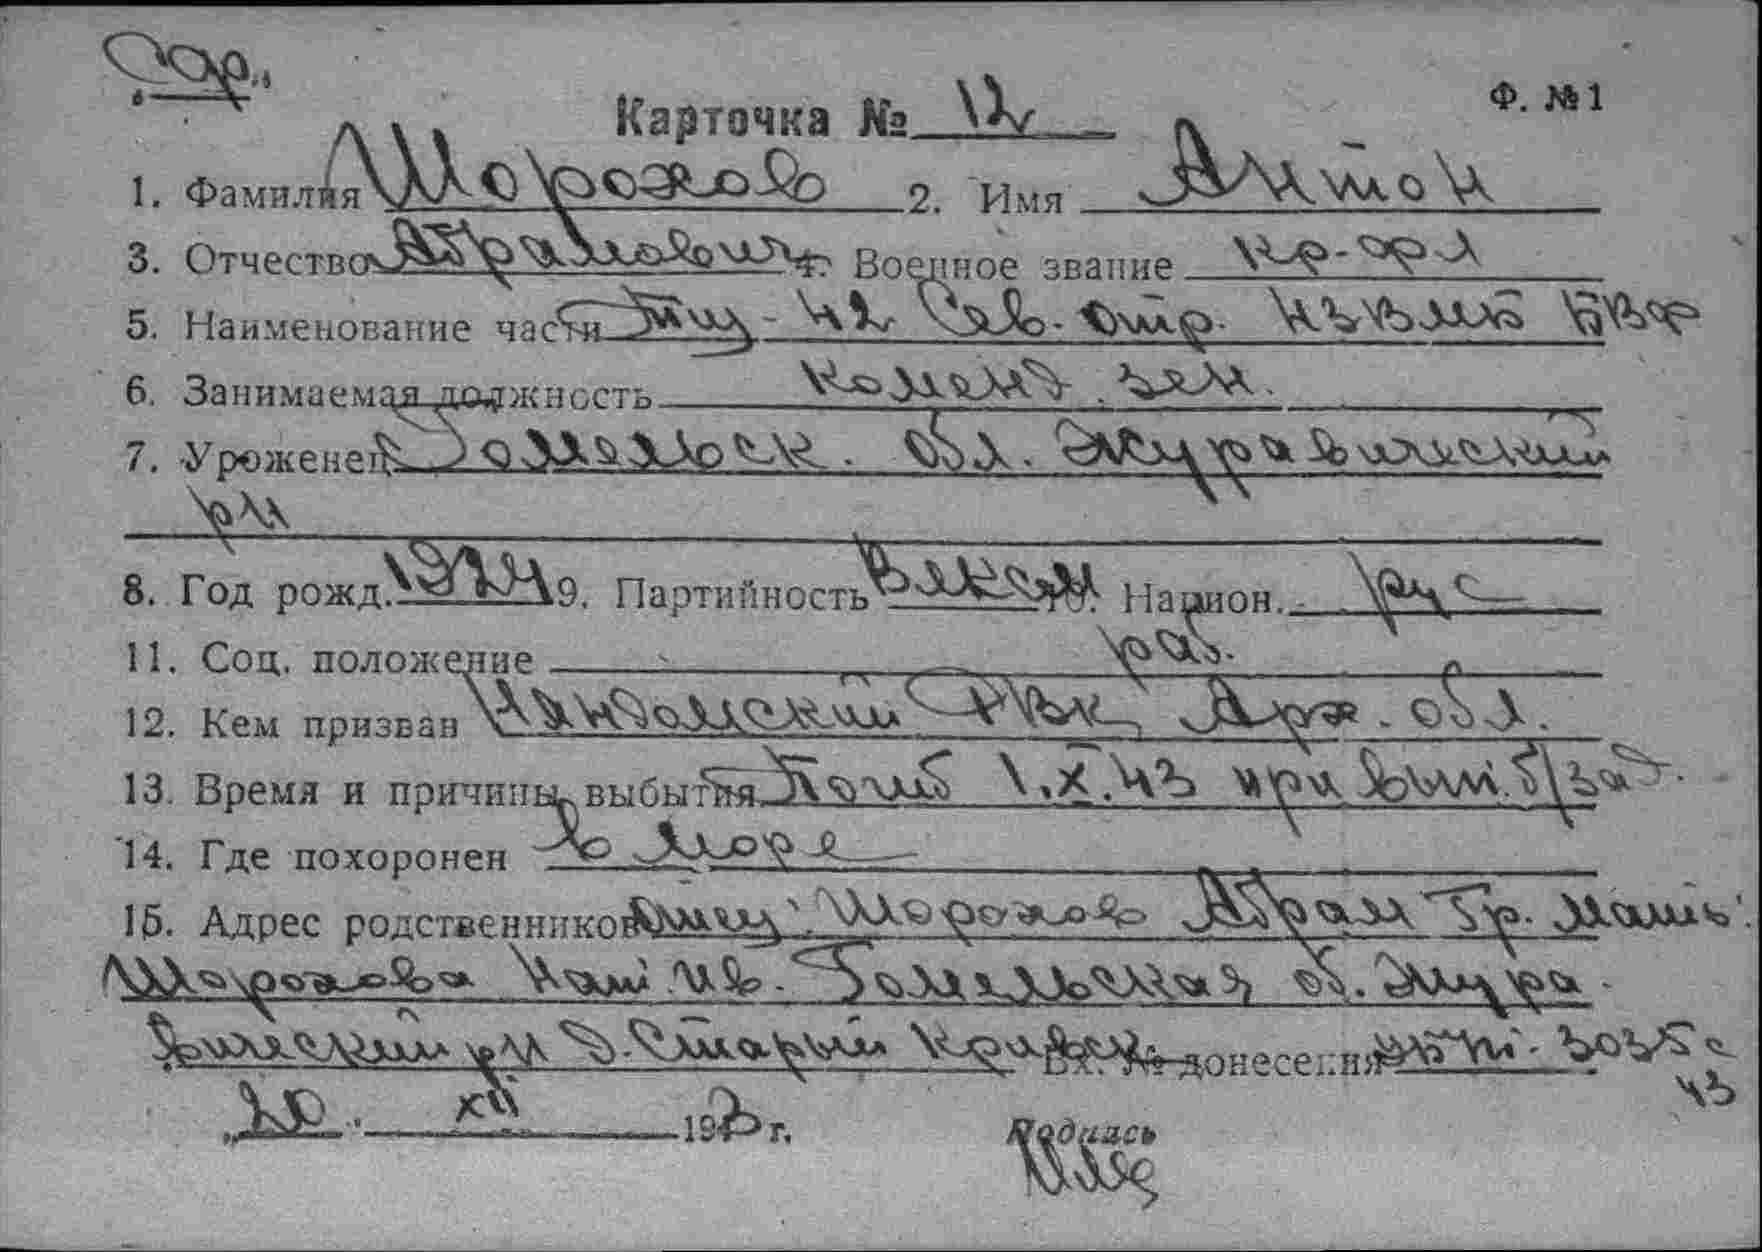 Сар.
Карточка № 12 Ф. №1
1. Фамилия Шорохов 2. Имя Антон
3. Отчество Абрамович 4. Военное звание кр-фл
5. Наименование части Тщ-42 Сев. отр. КЗВМБ КБФ
6. Занимаемая должность коменд. зен.
7. Уроженец Гомельск. обл. Журавический
рн
8. Год рожд. 1924 9. Партийность ВЛКСМ 10. Национ. рус
11. Соц. положение раб.
12. Кем призван Няндомский РВК, Арх. обл.
13. Время и причины выбытия Погиб 1.X.43 при вып. б/зад.
14. Где похоронен в море
15. Адрес родственников Отец: Шорохов Абрам Гр. мать:
Шорохова Нат. Ив. Гомельская об. Жура
вический рн д. Старый Кривск Вх. № донесения 3035с
43
„20" XII 193 г.
Подпись